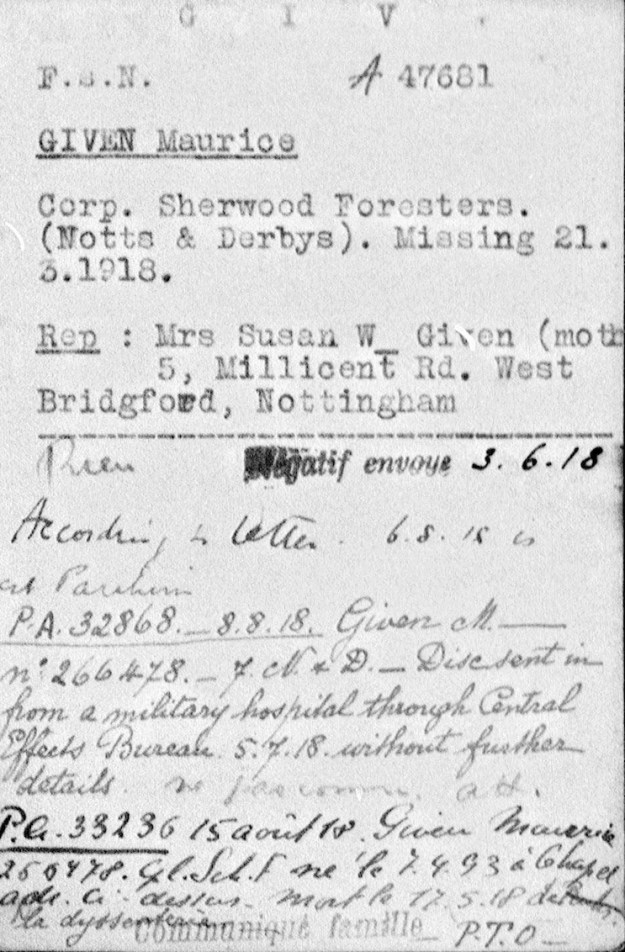 G I V
F.s.N. A 47681
GIVEN Maurice
Corp. Sherwood Foresters.
(Notts & Derbys). Missing 21.
3.1918.
Rep : Mrs Susan W_ Given (moth
5, Millicent Rd. West
Bridgford, Nottingham
Rien Négatif envoye 3.6.18
According to letter. 6.8.18 is
at Parchim
P.A. 32868. _ 8.8.18. Given M. —
n° 266478. _ 7. N. & D. _ Disc sent in
from a military hospital through Central
Effects Bureau. 5.7.18. without further
details. ne pas comm. a H.
P.A. 33236 15 août 18. Given Maurice
né le 7.4.93 à Chapel
adr. ci-dessus. Mort le 17.5.18 de
la dyssenterie
Communiqué famille P.T.O